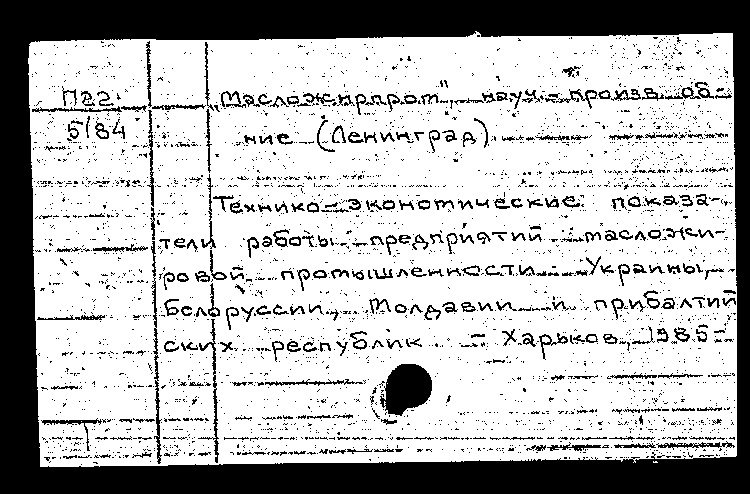 П22.
5/84
„Масложирпром", науч.-произв. об-
ние (Ленинград)
Технико-экономические показа-
тели работы предприятий масложи-
ровой промышленности Украины,
Белоруссии, Молдавии и прибалтий
ских республик. - Харьков, 1985-